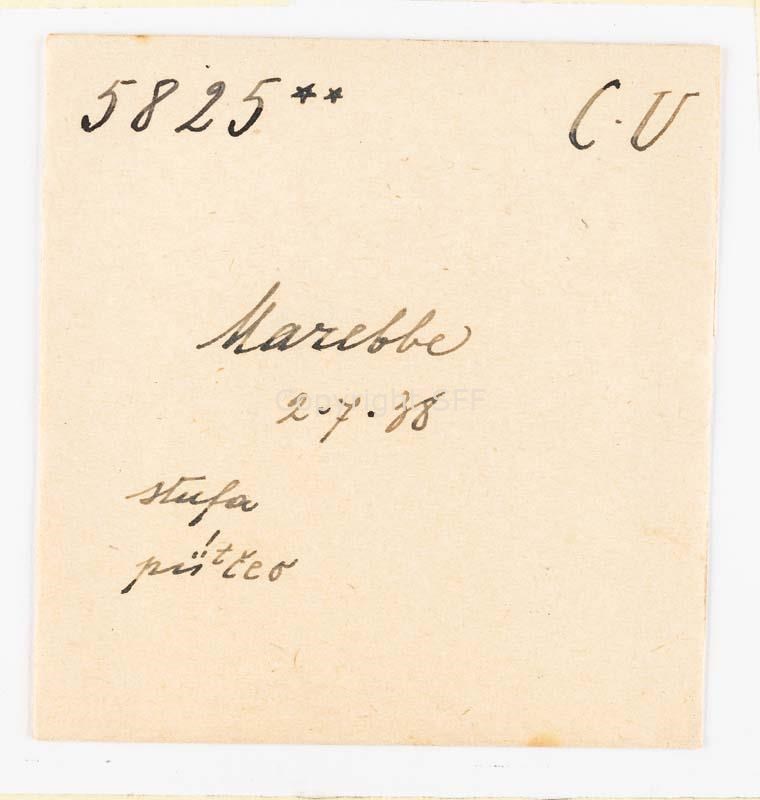 5825** C.U
Marebbe
Copyright SFF
2.7.38
stufa